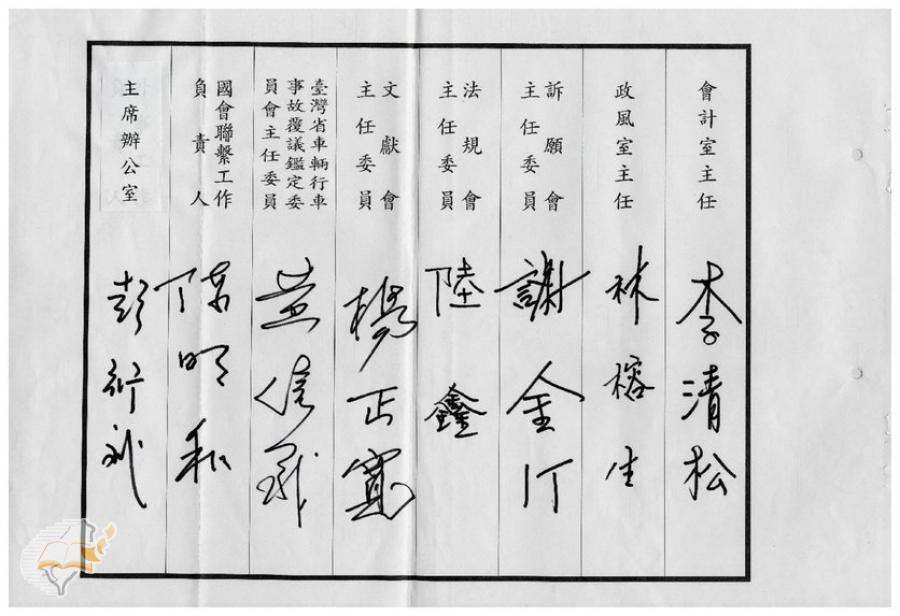 會計室主任
李清松
政風室主任
林榕生
訴願會
主任委員
謝金汀
法規會
主任委員
陸鑫
文獻會
主任委員
楊正寬
臺灣省車輛行車
事故覆議鑑定委
員會主任委員
國會聯繫工作
負責人
陳明和
主席辦公室